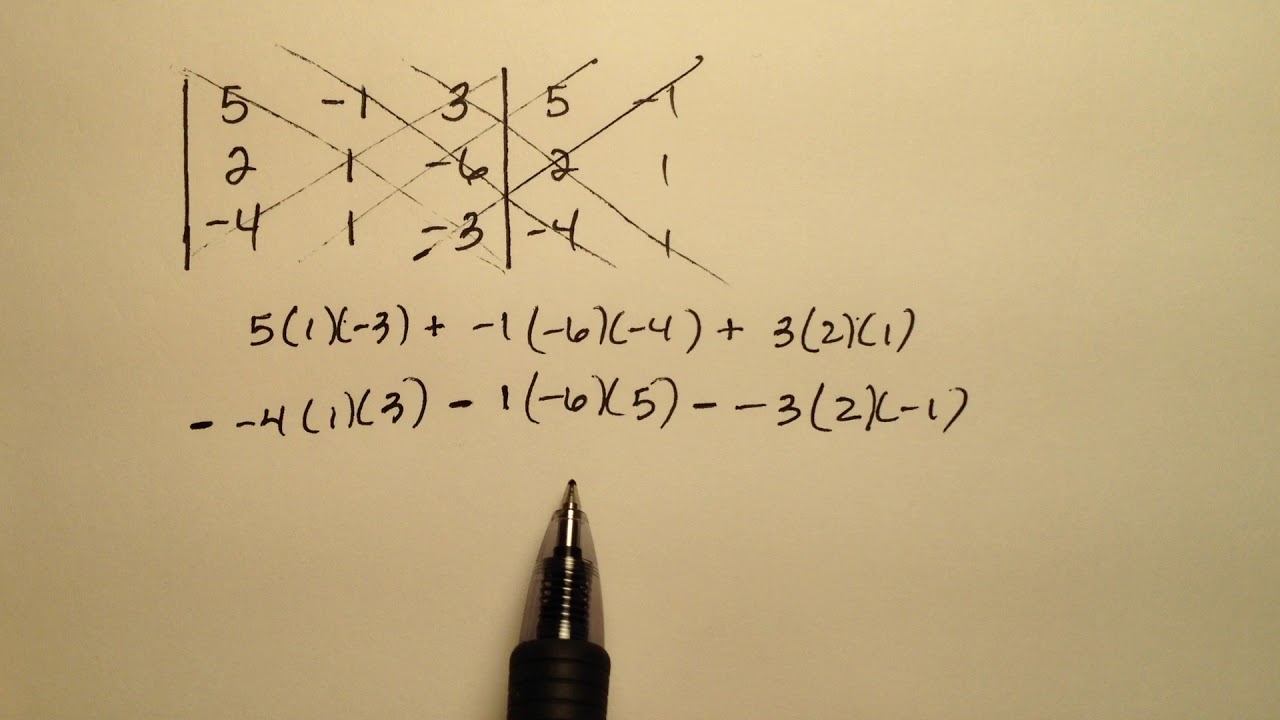 | 5 -1 3 | 5 -1
| 2 1 -6 | 2 1
| -4 1 -3 | -4 1
5(1)(-3) + -1(-6)(-4) + 3(2)(1)
- -4(1)(3) - 1(-6)(5) - -3(2)(-1)